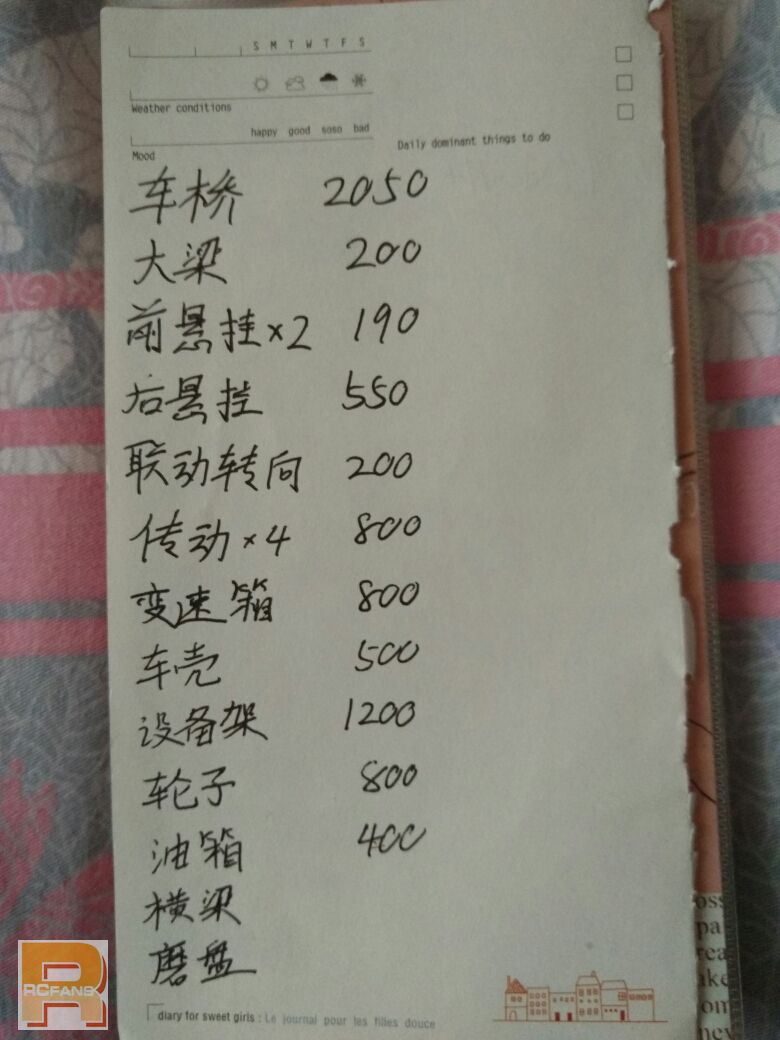 S M T W T F S
Weather conditions
happy good soso bad
Mood
Daily dominant things to do
车桥 2050
大梁 200
前悬挂×2 190
后悬挂 550
联动转向 200
传动×4 800
变速箱 800
车壳 500
设备架 1200
轮子 800
油箱 400
横梁
磨盘
diary for sweet girls : Le journal pour les filles douce
RCFANS